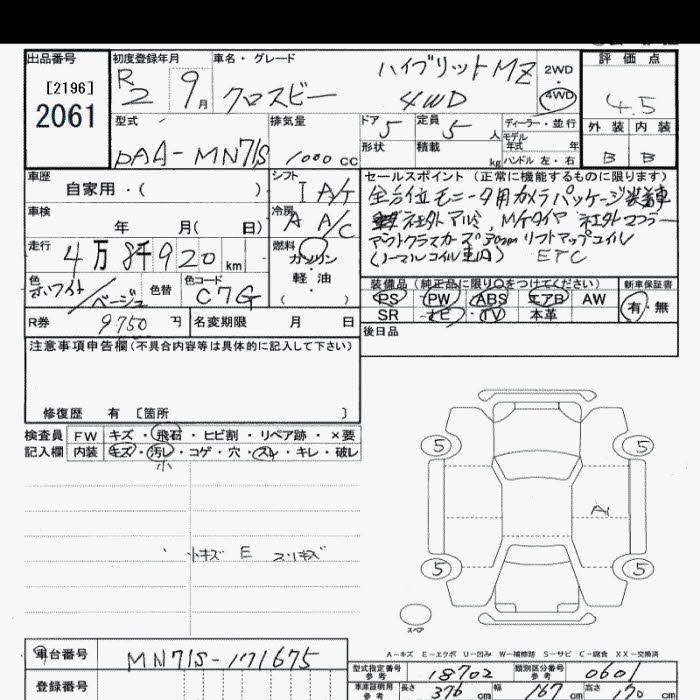 出品番号
[2196]
2061
初度登録年月
R2 9月
車名・グレード
クロスビー
ハイブリットMZ
4WD
2WD
4WD
評価点
4.5
型式
DAA-MN71S
排気量
1000cc
ドア 5
定員 5人
ディーラー・並行
モデル
年式 年
形状
積載 kg
ハンドル 左・右
外装 内装
B B
車歴
自家用・( )
シフト
IA/T
車検
年 月( 日)
冷房
A A/C
走行
4万8千920km
燃料
ガソリン
軽・油
( )
色
ホワイト/ベージュ
色替
色コード
C7G
R券
9750円
名変期限 月 日
セールスポイント (正常に機能するものに限ります)
全方位モニータ用カメラパッケージ装着車
社外アルミ、M/Tタイヤ 社外マフラー
アウトクラスカーズ 30mm リフトアップコイル
(ノーマルコイル車内) ETC
装備品 (純正品に限り○をつけてください)
PS PW ABS エアB AW
SR ナビ TV 本革
新車保証書
有・無
後日品
注意事項申告欄(不具合内容等は具体的に記入して下さい)
修復歴 有 [箇所 ]
検査員
記入欄
FW キズ・飛石・ヒビ割・リペア跡・×要
内装 キズ・汚レ・コゲ・穴・スレ・キレ・破レ
小
小キズ E スリキズ
5 5
A
5 5
スペア
A-キズ E-エクボ U-凹み W-補修跡 S-サビ C-腐食 XX-交換済
車台番号
MN71S-171675
登録番号
型式指定番号
参考
18702
類別区分番号
参考
0601
車庫証明用
参考
長さ 376cm
幅 167cm
高さ 170cm